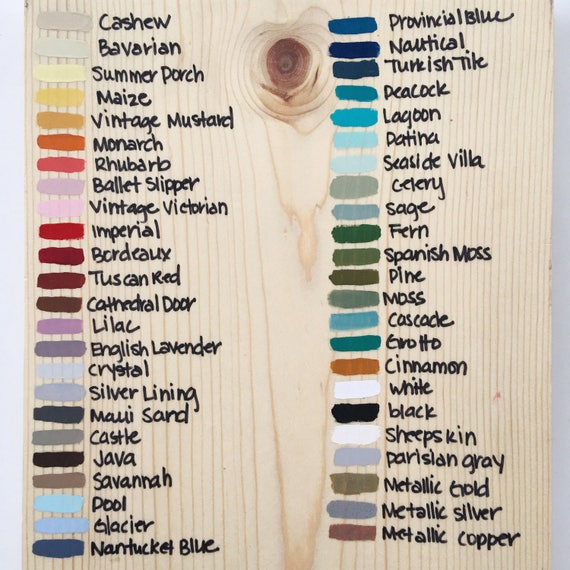 Cashew
Bavarian
Summer Porch
Maize
Vintage Mustard
Monarch
Rhubarb
Ballet Slipper
Vintage Victorian
Imperial
Bordeaux
Tuscan Red
Cathedral Door
Lilac
English Lavender
Crystal
Silver Lining
Maui Sand
Castle
Java
Savannah
Pool
Glacier
Nantucket Blue
Provincial Blue
Nautical
Turkish Tile
Peacock
Lagoon
Patina
Seaside Villa
Celery
Sage
Fern
Spanish Moss
Pine
Moss
Cascade
Grotto
Cinnamon
White
black
Sheepskin
parisian gray
Metallic Gold
Metallic silver
Metallic copper